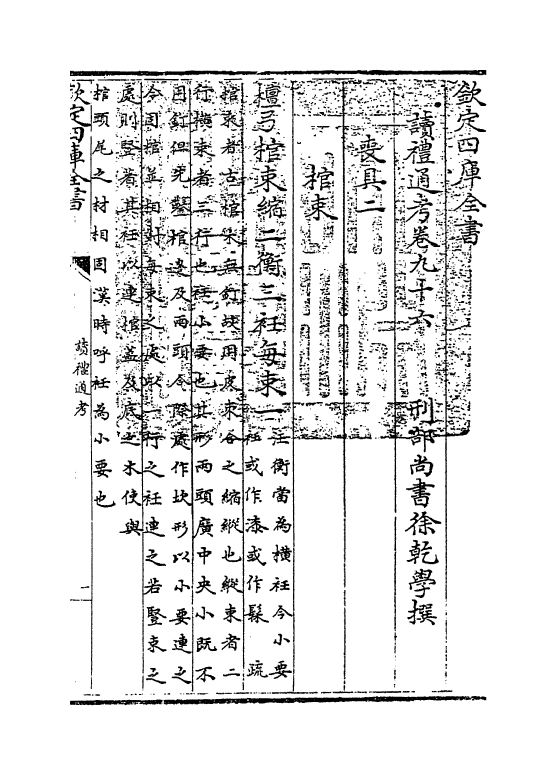 欽定四庫全書
讀禮通考卷九十六
刑部尚書徐乾學撰
喪具二
棺束
檀弓棺束縮二衡三衽每束一
注衡當為橫衽今小要
衽或作漆或作髹　疏
棺束者古棺木無釘故用皮束合之縮縱也縱束者二
行橫束者三行也衽小要也其形兩頭廣中央小既不
用釘但先鑿棺邊及兩頭合際處作坎形以小要連之
令固棺並相對每束之處以一行之衽連之若豎束之
處則豎著其衽以連棺蓋及底之木使與
棺頭尾之材相固漢時呼衽為小要也
欽定四庫全書
讀禮通考
一